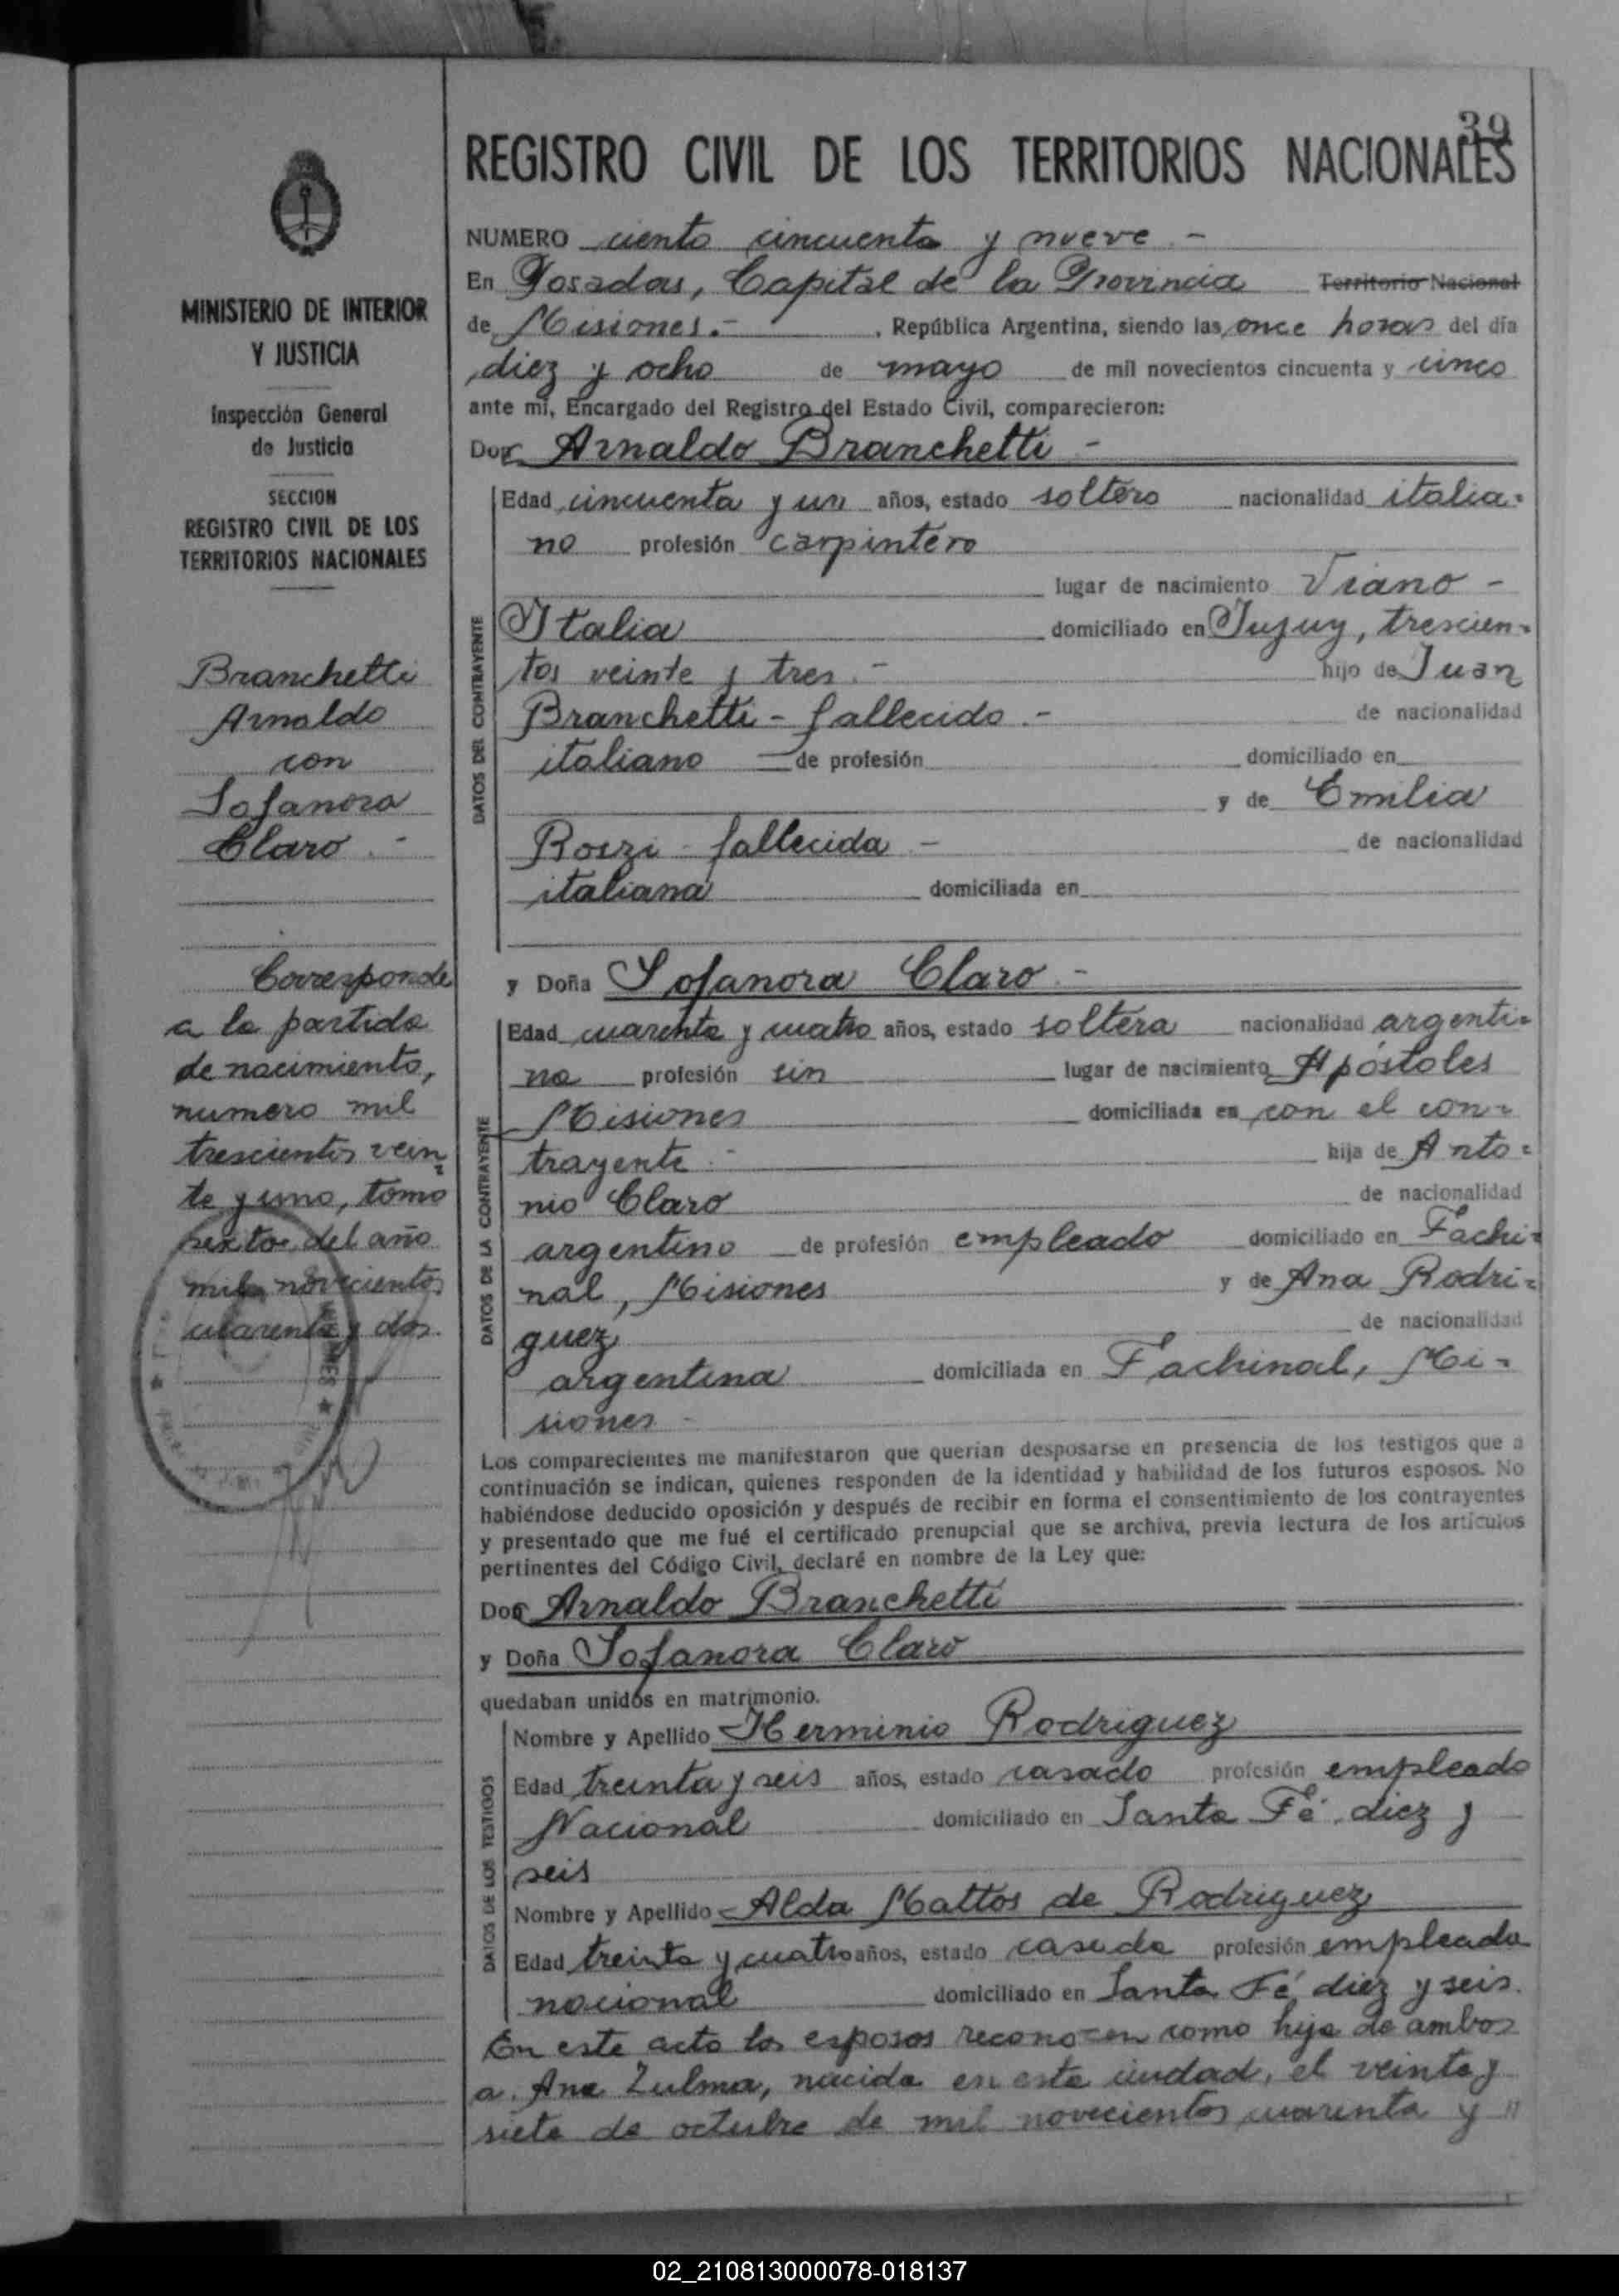 39
REGISTRO CIVIL DE LOS TERRITORIOS NACIONALES
MINISTERIO DE INTERIOR
Y JUSTICIA
Inspección General
de Justicia
SECCION
REGISTRO CIVIL DE LOS
TERRITORIOS NACIONALES
Branchetti
Arnaldo
con
Sofanora
Claro.-
Corresponde
a la partida
de nacimiento,
numero mil
trescientos vein
te y uno, tomo
sexto, del año
mil novecientos
cuarenta y dos.
NUMERO ciento cincuenta y nueve.-
En Posadas, Capital de la Provincia Territorio Nacional
de Misiones.- , República Argentina, siendo las once horas del día
diez y ocho de mayo de mil novecientos cincuenta y cinco
ante mí, Encargado del Registro del Estado Civil, comparecieron:
Don Arnaldo Branchetti -
DATOS DEL CONTRAYENTE
Edad cincuenta y un años, estado soltero nacionalidad italia-
no profesión carpintero
lugar de nacimiento Viano -
Italia domiciliado en Jujuy, trescien-
tos veinte y tres.- hijo de Juan
Branchetti - fallecido.- de nacionalidad
italiano de profesión domiciliado en
y de Emilia
Roszi - fallecida - de nacionalidad
italiana domiciliada en
y Doña Sofanora Claro -
DATOS DE LA CONTRAYENTE
Edad cuarenta y cuatro años, estado soltera nacionalidad argenti-
na profesión sin lugar de nacimiento Apóstoles
Misiones domiciliada en con el con-
trayente.- hija de Anto-
nio Claro de nacionalidad
argentino de profesión empleado domiciliado en Fachi-
nal, Misiones y de Ana Rodri-
guez de nacionalidad
argentina domiciliada en Fachinal, Mi-
siones -
Los comparecientes me manifestaron que querían desposarse en presencia de los testigos que a
continuación se indican, quienes responden de la identidad y habilidad de los futuros esposos. No
habiéndose deducido oposición y después de recibir en forma el consentimiento de los contrayentes
y presentado que me fué el certificado prenupcial que se archiva, previa lectura de los artículos
pertinentes del Código Civil, declaré en nombre de la Ley que:
Don Arnaldo Branchetti
y Doña Sofanora Claro
quedaban unidos en matrimonio.
DATOS DE LOS TESTIGOS
Nombre y Apellido Herminio Rodriguez
Edad treinta y seis años, estado casado profesión empleado
Nacional domiciliado en Santa Fé diez y
seis
Nombre y Apellido Alda Mattos de Rodriguez
Edad treinta y cuatro años, estado casada profesión empleada
nacional domiciliado en Santa Fé diez y seis.
En este acto los esposos reconocen como hija de ambos
a Ana Zulma, nacida en esta ciudad, el veinte y
siete de octubre de mil novecientos cuarenta y "
02_210813000078-018137